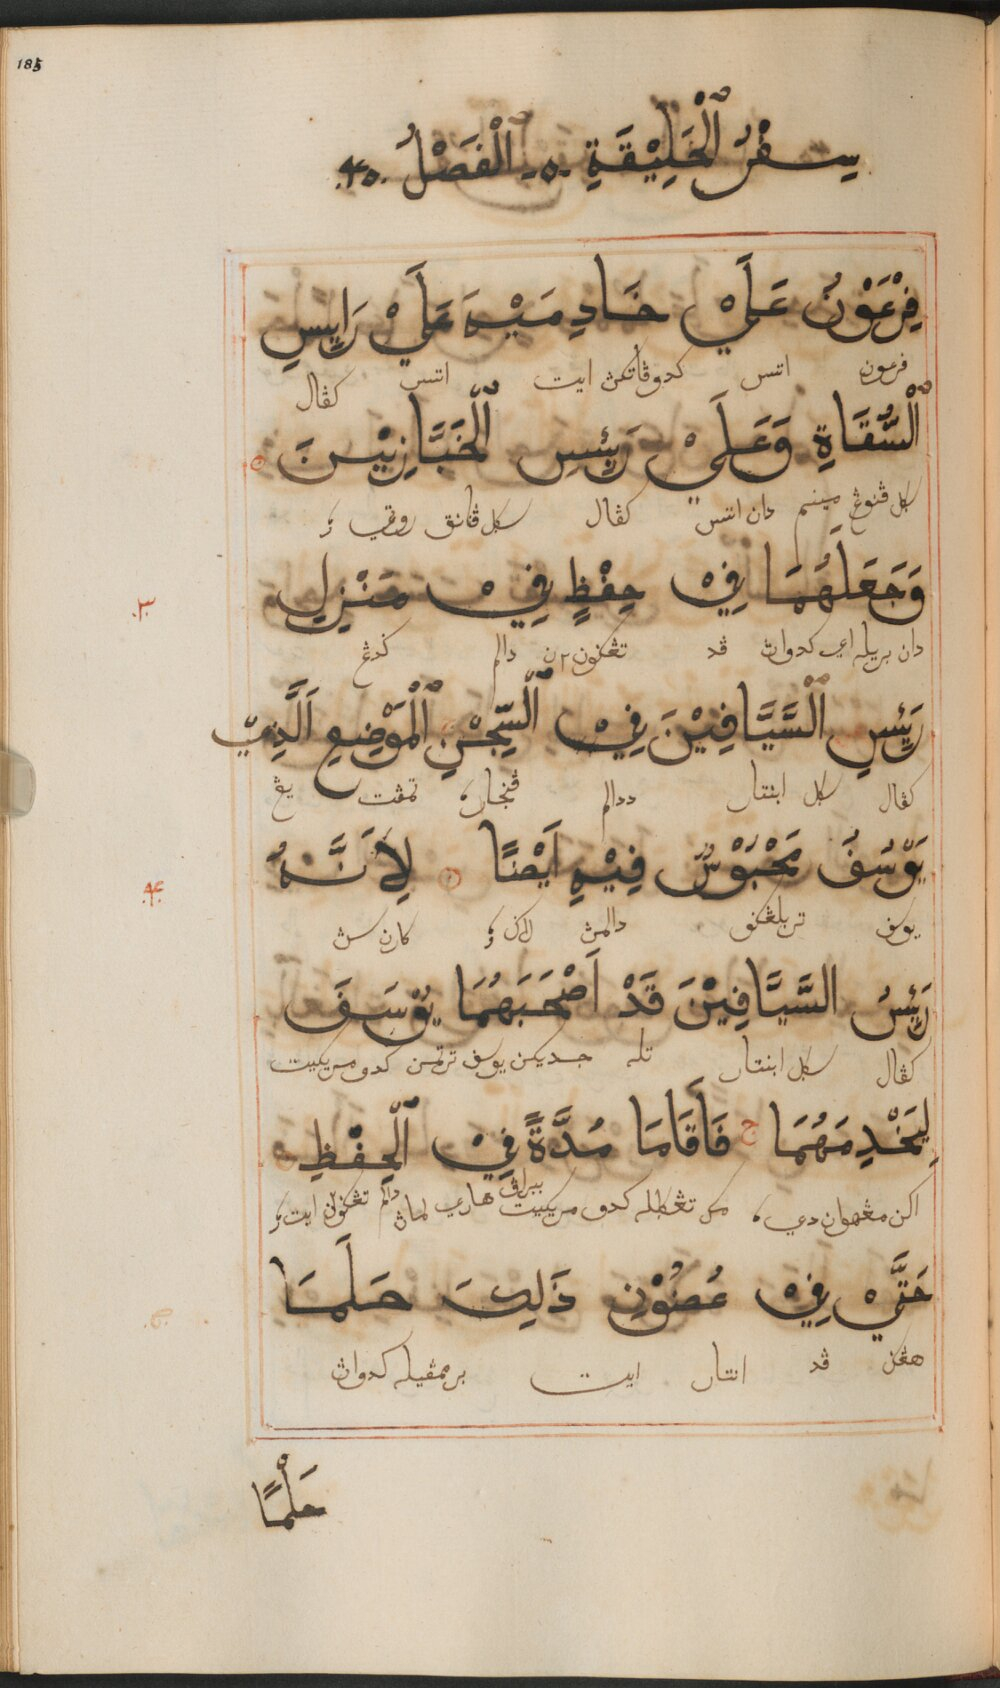 185
سِفْرُ ٱلْخَلِيْقَةِ ۰ ٱلْفَصْلُ ۴۰
فِرْعَوْنُ عَلَيْ خَادِمَيْهِ عَلَيْ رَايِسِ
فرعون اتس كدوڤاتكن ايت اتس كڤال
ٱلْسُّقَاةِ وَعَلَيْ رَئِيسِ ٱلْخَبَّازِيْنَ
سكل ڤنوڠ مينم دان اتس كڤال سكل ڤانق روتي
وَجَعَلَهُمَا فِيْ حِفْظٍ فِيْ مَنْزِلِ
۳
دان بريله اي كدواڽ ڤد تڠكوڠن۲ن دالم كدڠ
رَئِيسِ ٱلْسَّيَّافِيْنَ فِيْ ٱلْسِّجْنِ ٱلْمَوْضِعِ اَلَّذِيْ
كڤال سكل ابنتار ددالم ڤنجارا تمڤت يڠ
يُوْسُفُ مَحْبُوْسٌ فِيْهِ اَيْضًا لِاَنَّهُ
۴
يوسف تربلڠكو دالمڽ كارن سڽ
رَئِيسُ السَّيَّافِيْنَ قَدْ اَصْحَبَهُمَا يُوْسَفَ
كڤال سكل ابنتار تله جديكن يوسف ترتمن كدو مريكيت
لِيَخْدِمَهُمَا ج فَاَقَامَا مُدَّةً فِيْ ٱلْحِفْظِ
اكن مڠهوان دي تڠكله كدو مريكيت ببراڤ هاري لماڽ دالم تڠكوڠن ايت
حَتَّيْ فِيْ غُضُوْنِ ذَلِكَ حَلَمَا
هڠكن ڤد انتار ايت برممڤيله كدواڽ
حَلْمًا